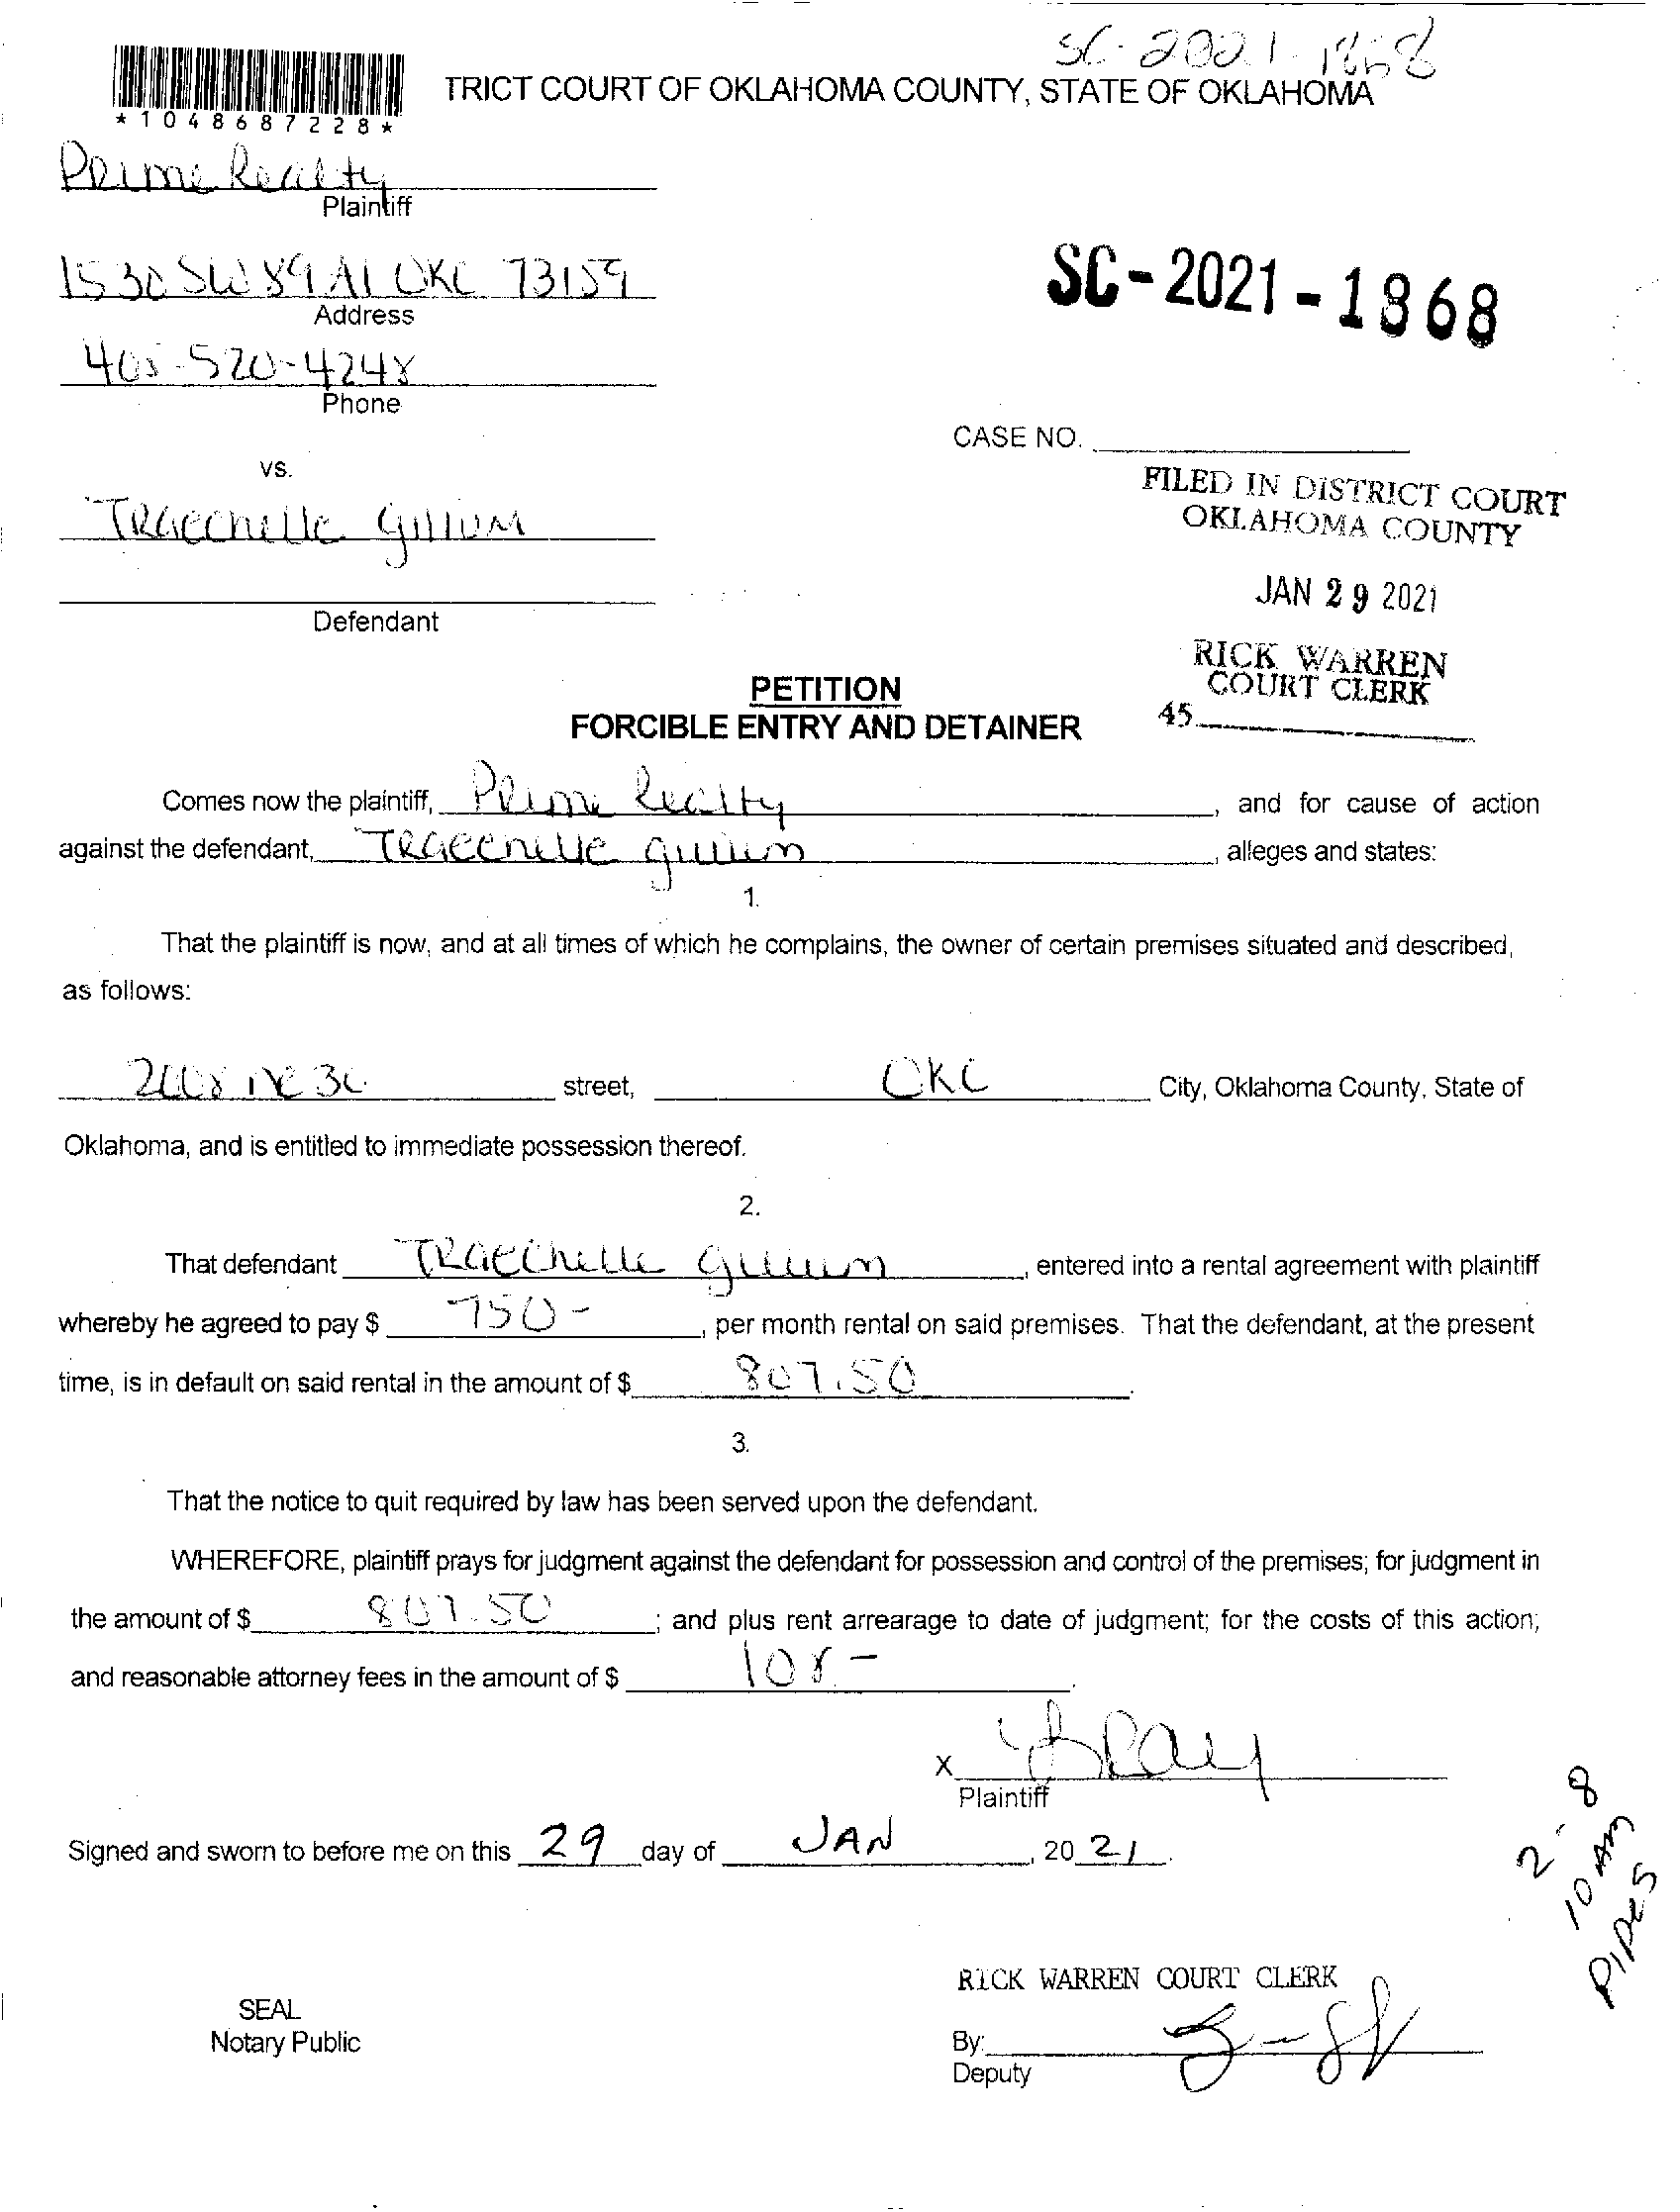 SC-2021-1868
*1048687228*
TRICT COURT OF OKLAHOMA COUNTY, STATE OF OKLAHOMA
Prime Realty
Plaintiff
1530 SW 89 A1 OKC 73159
Address
SC-2021-1868
405-520-4248
Phone
CASE NO.
vs.
FILED IN DISTRICT COURT
OKLAHOMA COUNTY
Traechelle Gillum
JAN 29 2021
Defendant
RICK WARREN
COURT CLERK
45
PETITION
FORCIBLE ENTRY AND DETAINER
Comes now the plaintiff, Prime Realty, and for cause of action
against the defendant, Traechelle Gillum, alleges and states:
1.
That the plaintiff is now, and at all times of which he complains, the owner of certain premises situated and described,
as follows:
2008 NE 30 street, OKC City, Oklahoma County, State of
Oklahoma, and is entitled to immediate possession thereof.
2.
That defendant Traechelle Gillum, entered into a rental agreement with plaintiff
whereby he agreed to pay $ 750-, per month rental on said premises. That the defendant, at the present
time, is in default on said rental in the amount of $ 807.50.
3.
That the notice to quit required by law has been served upon the defendant.
WHEREFORE, plaintiff prays for judgment against the defendant for possession and control of the premises; for judgment in
the amount of $ 807.50; and plus rent arrearage to date of judgment; for the costs of this action;
and reasonable attorney fees in the amount of $ 108-.
X
Plaintiff
Signed and sworn to before me on this 29 day of JAN, 20 21.
2-8
10 AM
PIPES
RICK WARREN COURT CLERK
SEAL
Notary Public
By:
Deputy